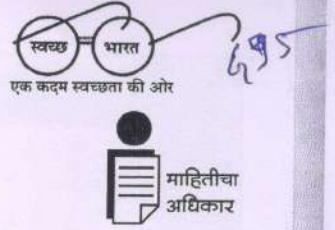 स्वच्छ भारत
एक कदम स्वच्छता की ओर
माहितीचा
अधिकार